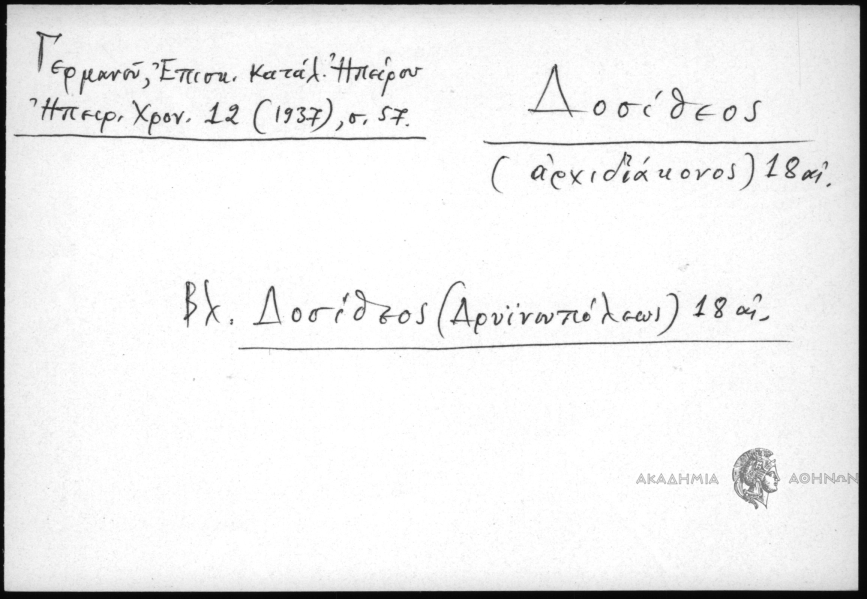 Γερμανοῦ, Ἐπισκ. Κατάλ. Ἠπείρου
Ἠπειρ. Χρον. 12 (1937), σ. 57.
Δοσίθεος
(ἀρχιδιάκονος) 18 αἰ.
Βλ. Δοσίθεος (Δρυϊνουπόλεως) 18 αἰ.
ΑΚΑΔΗΜΙΑ ΑΘΗΝΩΝ